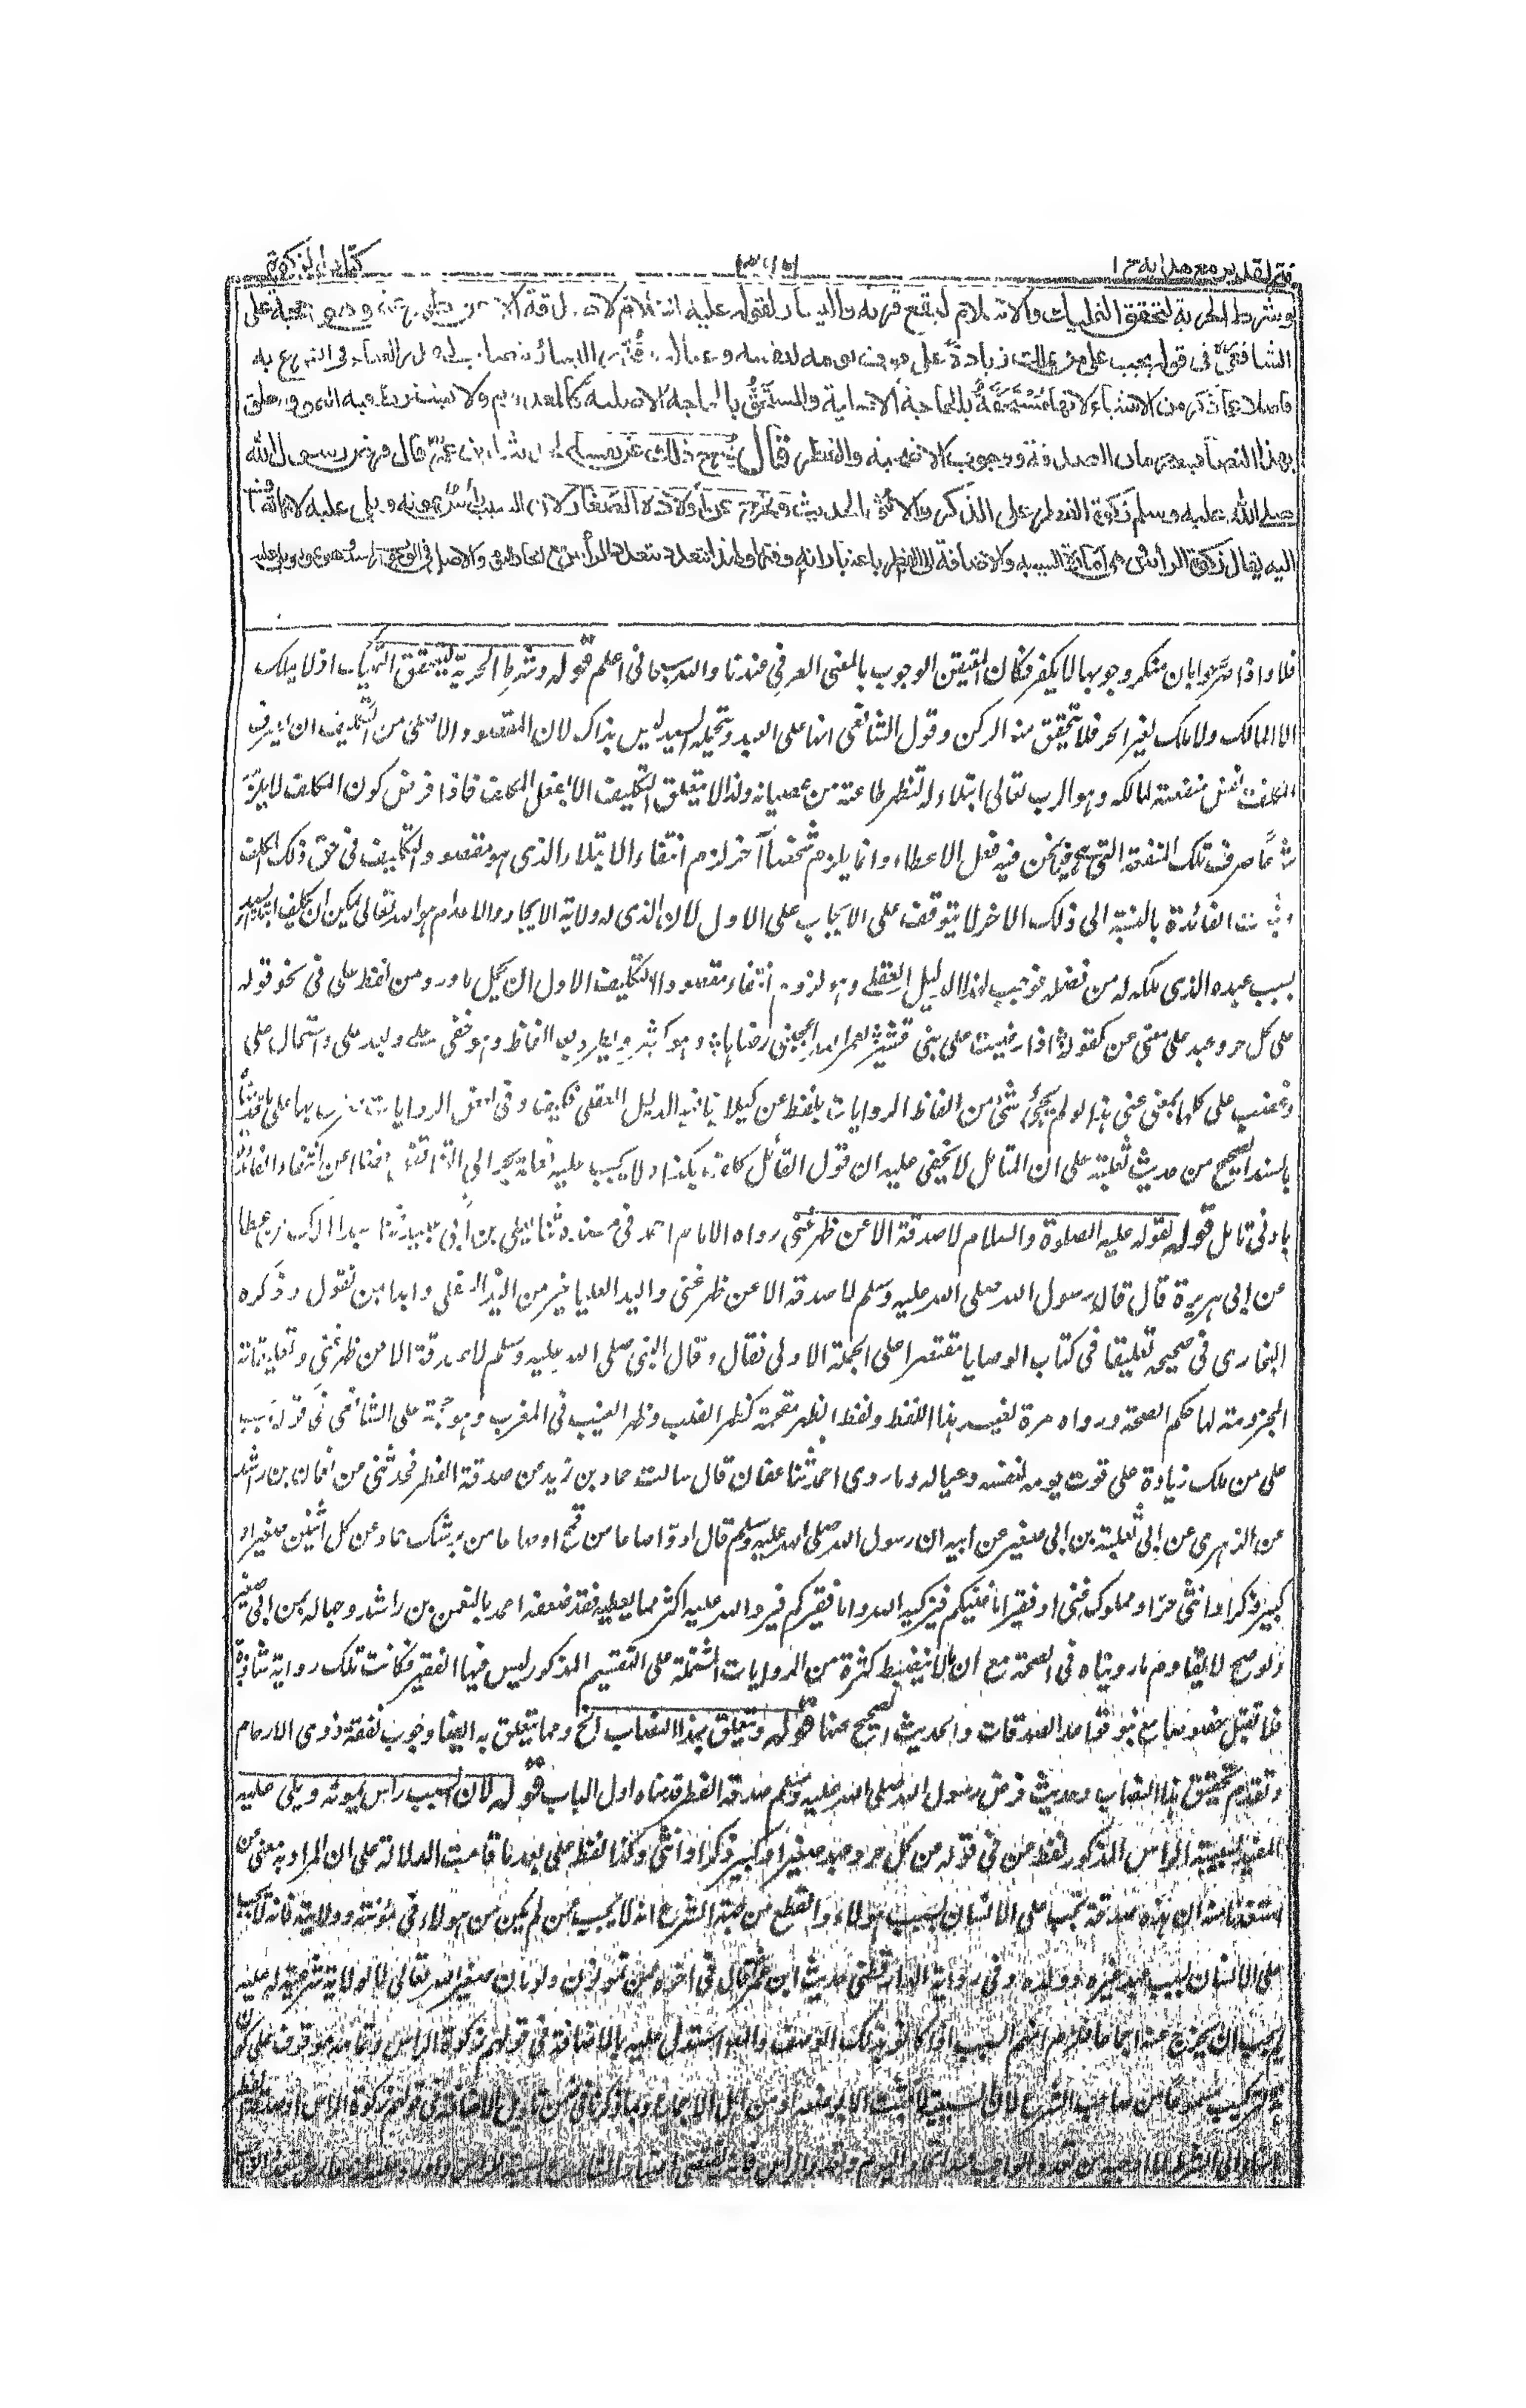 فتح القدير مع هدايه ج ١
كتاب الزكوة
وشرط الحرية لتحقق التمليك والاسلام ليقع قربة واليسار لقوله عليه السلام لا صدقة الا عن ظهر غنى وهو حجة على
الشافعى فى قوله يجب على من يملك زيادة على قوت يومه لنفسه وعياله وقدر اليسار بالنصاب لتقدر الغناء فى الشرع به
فاضلا عما ذكر من الاشياء لانها مستحقة بالحاجة الاصلية والمستحق بالحاجة الاصلية كالمعدوم ولا يشترط فيه النمو ويتعلق
بهذا النصاب حرمان الصدقة ووجوب الاضحية والفطر قال يخرج ذلك عن نفسه لحديث ابن عمر قال فرض رسول الله
صلى الله عليه وسلم زكوة الفطر على الذكر والانثى الحديث ويخرج عن اولاده الصغار لان السبب رأس يمونه ويلى عليه لانها تضاف
اليه يقال زكوة الرأس وهى امارة السببية والاضافة الى الفطر باعتبار انه وقته ولهذا تتعدد بتعدد الرأس مع اتحاد اليوم والاصل فى الوجوب رأسه وهو يمونه ويلى عليه
فلا واذا صرحوا بان منكر وجوبها لا يكفر فكان المتيقن الوجوب بالمعنى العرفى عندنا والله سبحانه اعلم قوله وشرط الحرية ليتحقق التمليك اذ لا يملك
الا المالك ولا ملك لغير الحر فلا يتحقق منه الركن وقول الشافعى انها على العبد ويتحمله السيد ليس بذاك لان المقصود الاصلى من التكليف ان يصرف
المكلف نفس منفعته لمالكه وهو الرب تعالى ابتلاء له لتظهر طاعته من عصيانه ولذا لا يتعلق التكليف الا بفعل المكلف فاذا فرض كون المكلف لا يلزمه
شرعا صرف تلك المنفعة التى هى فيما نحن فيه فعل الاعطاء وانما يلزم شخصا آخر لزم انتفاء الابتلاء الذى هو مقصود التكليف فى حق ذلك المكلف
وثبوت الفائدة بالنسبة الى ذلك الاخر لا يتوقف على الايجاب على الاول لان الذى له ولاية الايجاد والاعدام هو الله تعالى يمكن ان يكلف ابتداء السيد
بسبب عبده الذى ملكه له من فضله فوجب لهذا الدليل العقلى وهو لزوم انتفاء مقصود التكليف الاول ان يحمل ما ورد من لفظ على فى نحو قوله
على كل حر وعبد على معنى عن كقوله اذا رضيت على بنو قشير لعمر الله اعجبنى رضاها وهو كثير ويطرد بعد الفاظ وهو خفى على وبعد على واستحال على
وغضب على كلها بمعنى عنى هذا لو لم يجئ شئ من الفاظ الروايات بلفظ عن كيلا ينافيه الدليل العقلى فكيف وفى بعض الروايات صرح بها على ما قدمنا
بالسند الصحيح من حديث ثعلبة على ان المتأمل لا يخفى عليه ان قول القائل كلف بكذا ولا يجب عليه فعله يجر الى التناقض فضلا عن انتفاء الفائدة
بادنى تامل قوله لقوله عليه الصلوة والسلام لا صدقة الا عن ظهر غنى رواه الامام احمد فى مسنده حدثنا يعلى بن عبيد حدثنا عبد الملك عن عطا
عن ابى هريرة قال قال رسول الله صلى الله عليه وسلم لا صدقة الا عن ظهر غنى واليد العليا خير من اليد السفلى وابدا بمن تعول وذكره
البخارى فى صحيحه تعليقا فى كتاب الوصايا مقتصرا على الجملة الاولى فقال وقال النبى صلى الله عليه وسلم لا صدقة الا عن ظهر غنى وتعليقاته
المجزومة لها حكم الصحة ورواه مرة لغير هذا اللفظ ولفظ الظهر مقحمة كظهر القلب وظهر الغيب فى المغرب وهو حجة على الشافعى فى قوله يجب
على من ملك زيادة على قوت يومه لنفسه وعياله وما روى احمد حدثنا عفان قال سالت حماد بن زيد عن صدقة الفطر فحدثنى عن نعمان بن راشد
عن الزهرى عن ابى ثعلبة بن ابى صعير عن ابيه ان رسول الله صلى الله عليه وسلم قال ادوا صاعا من قمح او صاعا من بر شك حماد عن كل اثنين صغير او
كبير ذكر او انثى حر او مملوك غنى او فقير اما غنيكم فيزكيه الله واما فقيركم فيرد الله عليه اكثر مما يعطيه فقد ضعفه احمد بالنعمان بن راشد وجهالة ابن ابى صعير
ولو صح لا يقاوم ما رويناه فى الصحة مع ان ما لا ينضبط كثرة من الروايات المشتملة على التقسيم المذكور ليس فيها الفقير فكانت تلك رواية شاذة
فلا تقبل خصوصا مع نبو قواعد الصدقات والحديث الصحيح عنها قوله ويتعلق بهذا النصاب الخ ومما يتعلق به ايضا وجوب نفقة ذوى الارحام
وتقدم تحقيق هذا النصاب وحديث فرض رسول الله صلى الله عليه وسلم صدقة الفطر قدمناه اول الباب قوله لان السبب راس يمونه ويلى عليه
المفيد لسببية الراس المذكور لفظ عن فى قوله عن كل حر وعبد صغير او كبير ذكر او انثى وكذا لفظ على بعد ما قامت الدلالة على ان المراد به معنى عن
استفدنا منه ان هذه صدقة تجب على الانسان بسبب هؤلاء والقطع من جهة الشرع انه لا يجب عمن لم يكن من هؤلاء فى مؤنته وولايته فانه لا يجب
على الانسان بسبب عبد غيره وولده وفى رواية الدارقطنى حديث ابن عمر قال فى اخره ممن تمونون ولو مان صغيرا لله تعالى لا لولاية شرعية له عليه
لم يجب ان يخرج عنه اجماعا فلزم انهم السبب اذا كانوا بذلك الوصف واستدل عليه بالاضافة فى قولهم زكوة الراس وتمامه موقوف على كون